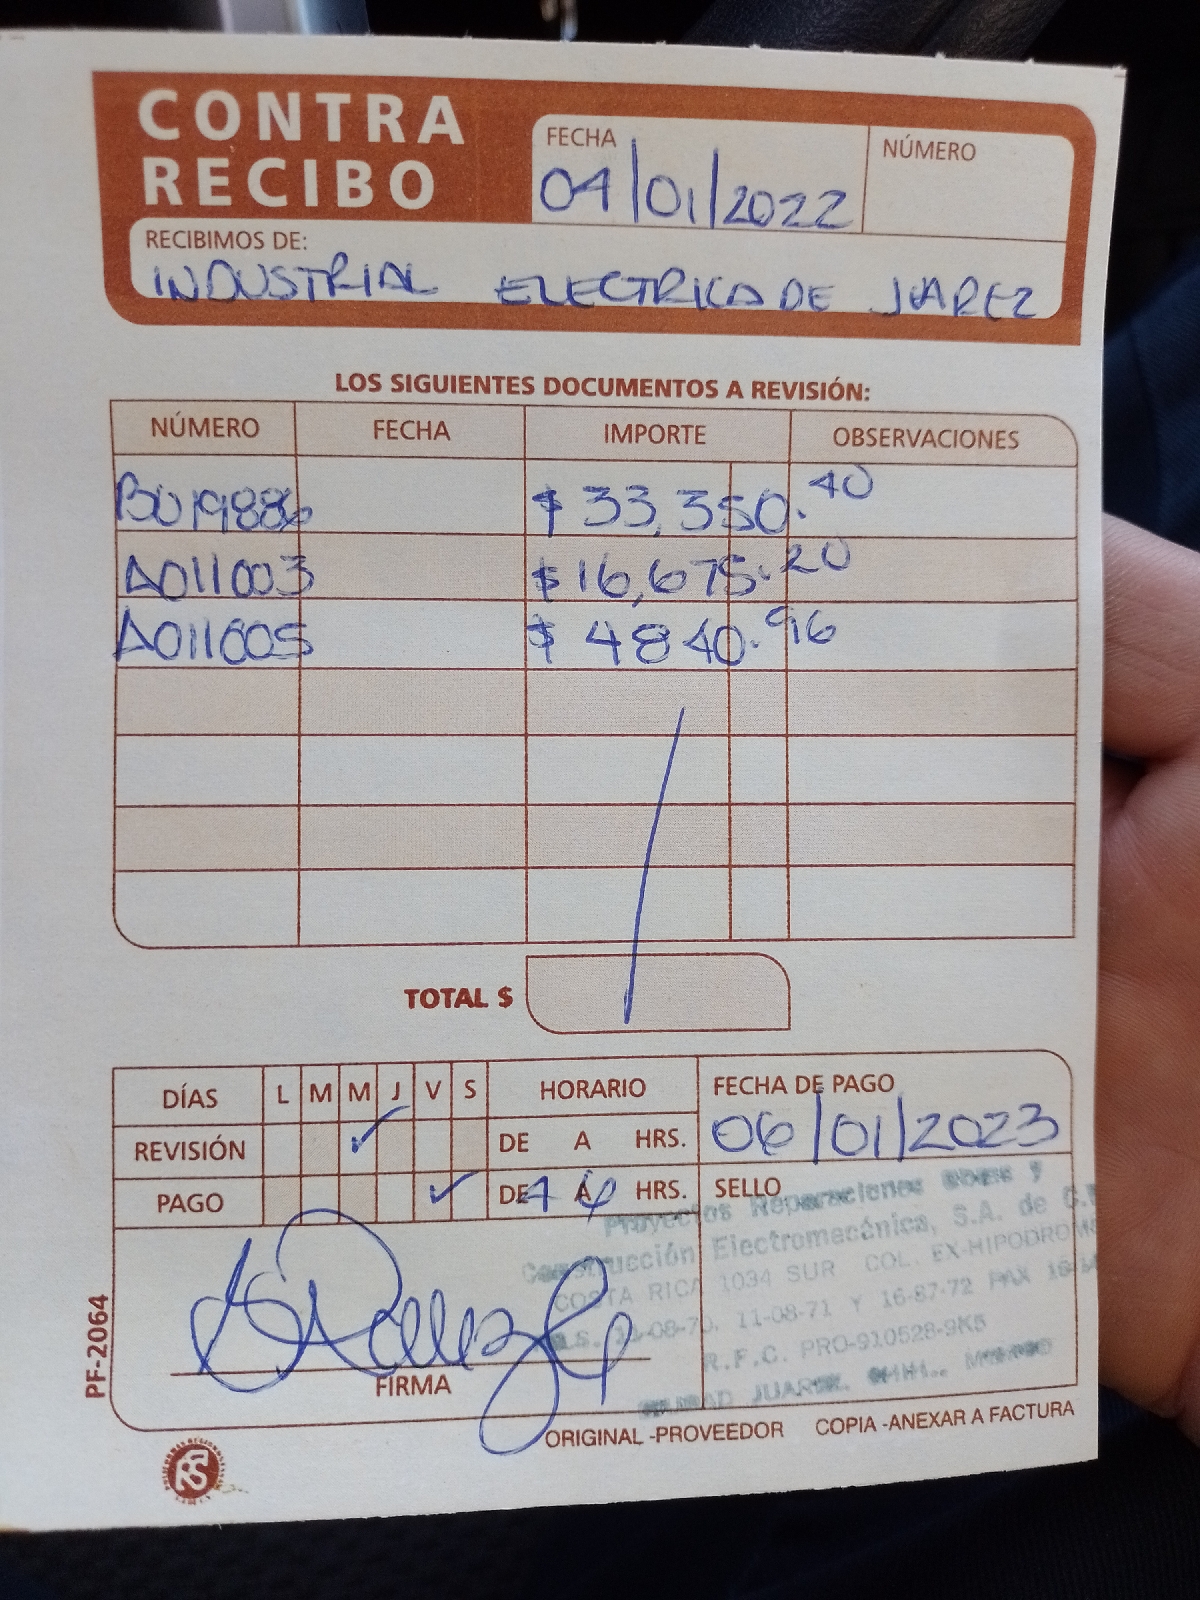 CONTRA
RECIBO
FECHA
04/01/2022
NÚMERO
RECIBIMOS DE:
INDUSTRIAL ELECTRICA DE JUAREZ
LOS SIGUIENTES DOCUMENTOS A REVISIÓN:
NÚMERO FECHA IMPORTE OBSERVACIONES
B019886 $33,350.40
A011003 $16,675.20
A011005 $4840.96
TOTAL $
DÍAS L M M J V S HORARIO
REVISIÓN DE A HRS.
PAGO DE 4 A 6 HRS.
FECHA DE PAGO
06/01/2023
SELLO
Proyectos Reparaciones y
Construcción Electromecánica, S.A. de C.
COSTA RICA 1034 SUR COL. EX-HIPODROMO
11-08-71 Y 16-87-72
R.F.C. PRO-910528-9K5
CIUDAD JUAREZ, CHIH.,
FIRMA
PF-2064
ORIGINAL -PROVEEDOR COPIA -ANEXAR A FACTURA